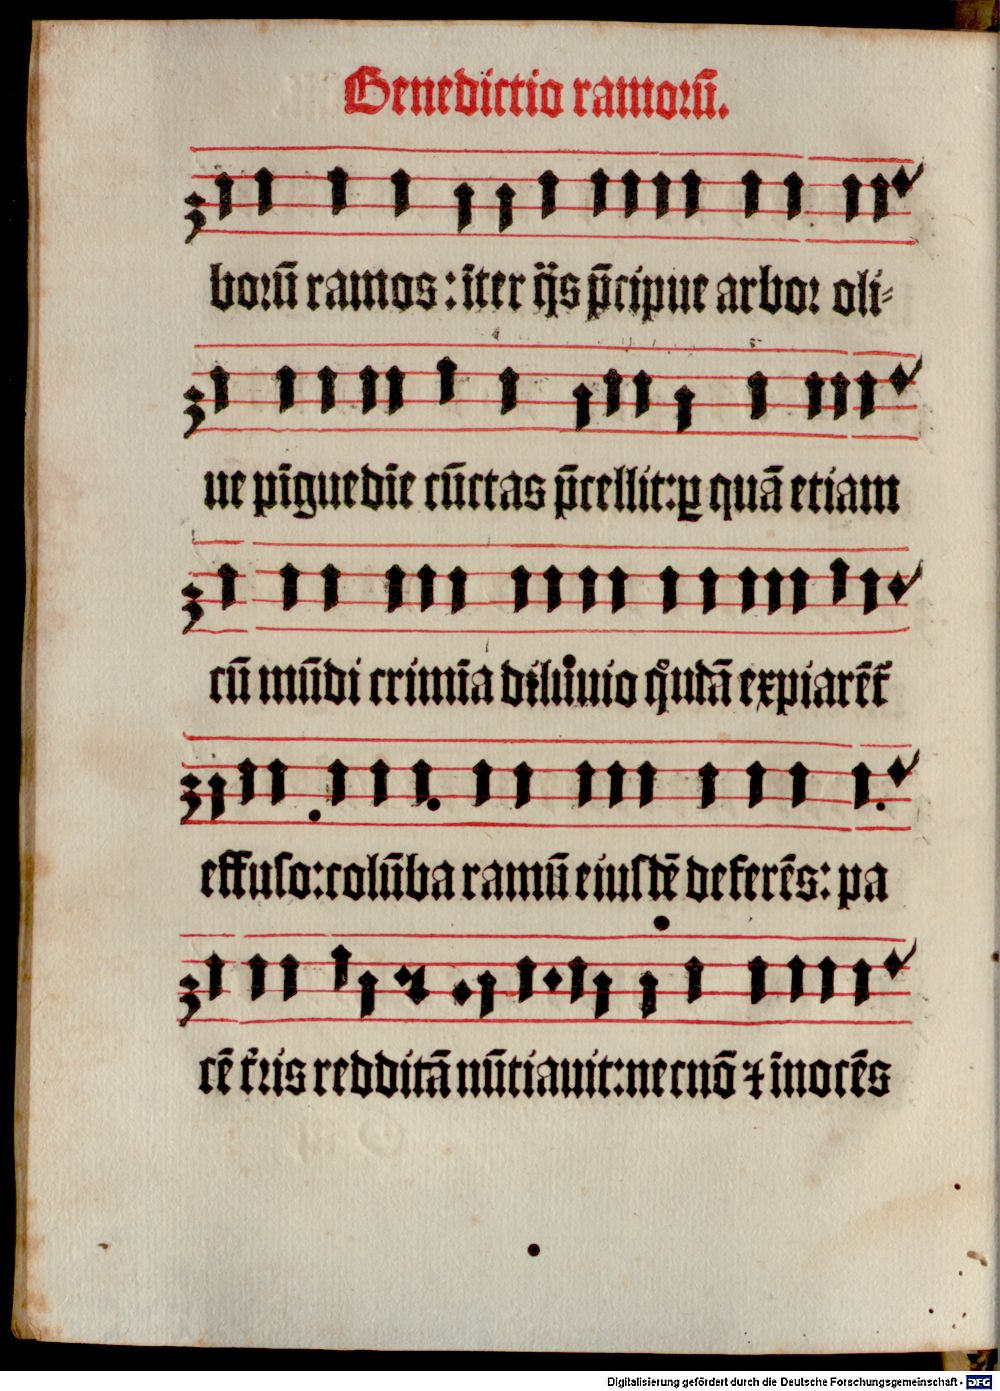 Benedictio ramoꝝ̃.
boꝛũ ramos : ĩter q̃s p̃cipue arboꝛ oli⸗
ue pĩguedĩe cũctas p̃cellit: ꝑ quã etiam
cũ mũdi crimĩa diluuio q̊ndã expiarẽt̃
effuso: colũba ramũ eiusdẽ deferẽs: pa
cẽ t̃ris redditã nũtiauit: necnõ ⁊ ĩnocẽs
Digitalisierung gefördert durch die Deutsche Forschungsgemeinschaft - DFG